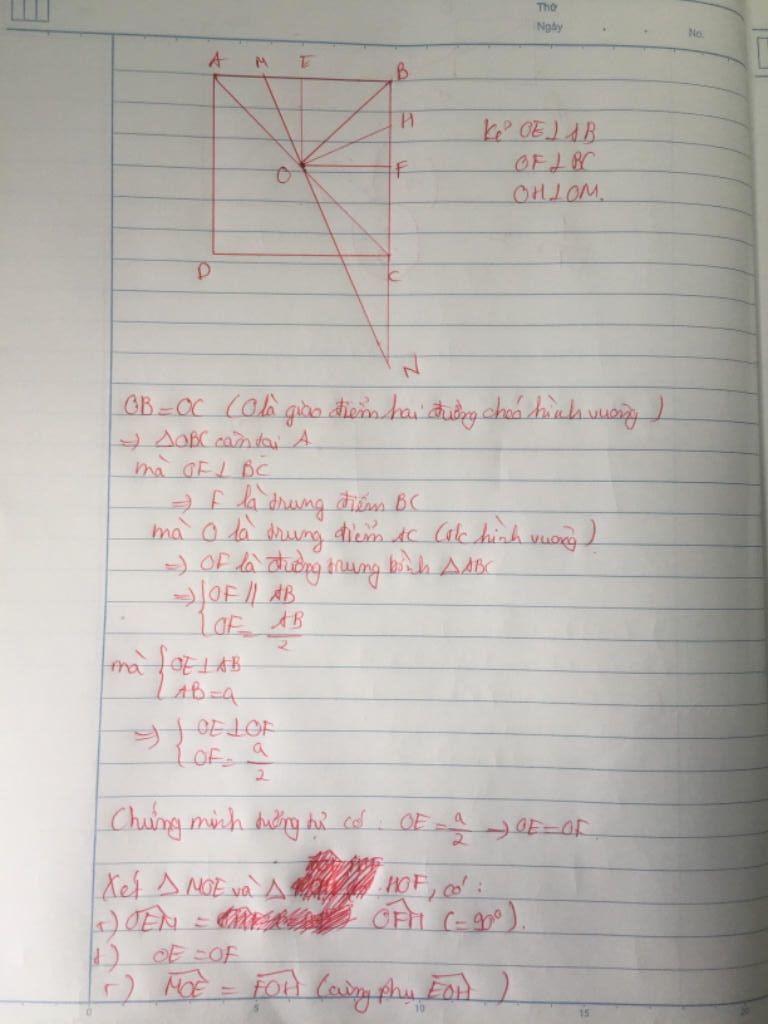 Thứ
Ngày . . No.
A M E B
H
O F
D C
N
Kẻ OE⊥AB
OF⊥BC
OH⊥OM.
OB=OC (O là giao điểm hai đường chéo hình vuông)
=> △OBC cân tại A
mà OF⊥BC
=> F là trung điểm BC
mà O là trung điểm AC (t/c hình vuông)
=> OF là đường trung bình △ABC
=> { OF // AB
OF = AB/2
mà { OE⊥AB
AB=a
=> { OE⊥OF
OF = a/2
Chứng minh tương tự có: OE = a/2 → OE=OF
Xét △MOE và △ HOF, có:
+) OEM = OFH (=90°).
+) OE=OF
+) MOE = FOH (cùng phụ EOH)
0 5 10 15 20